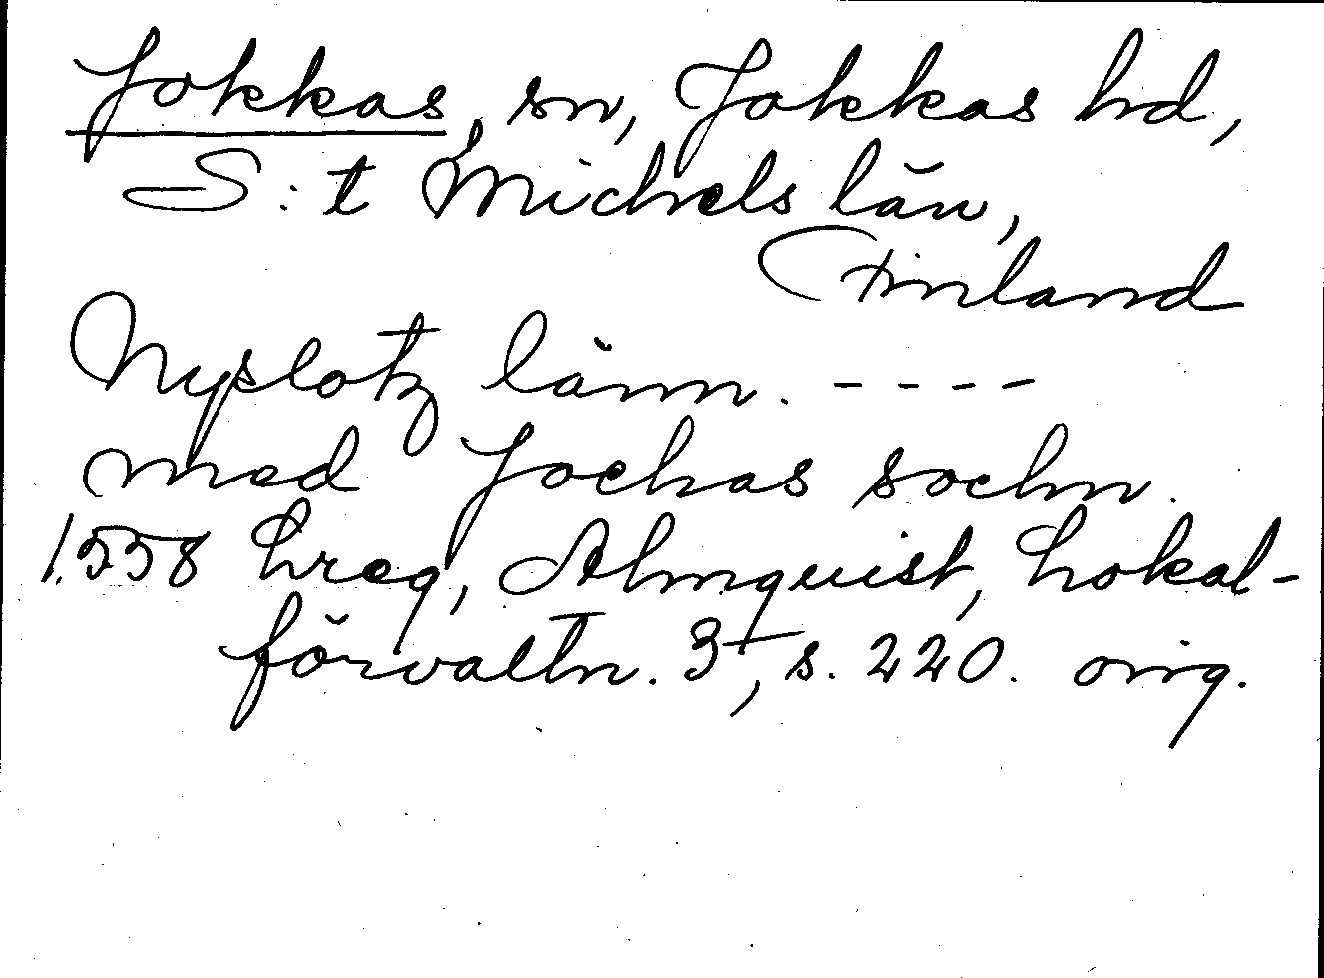 Jokkas, sn, Jokkas hd,
S:t Michels län,
Finland
Nyslotz länn. - - - -
med Jockas sockn.
1558 hreg, Almquist, Lokal-
förvaltn. 3, s. 220. orig.